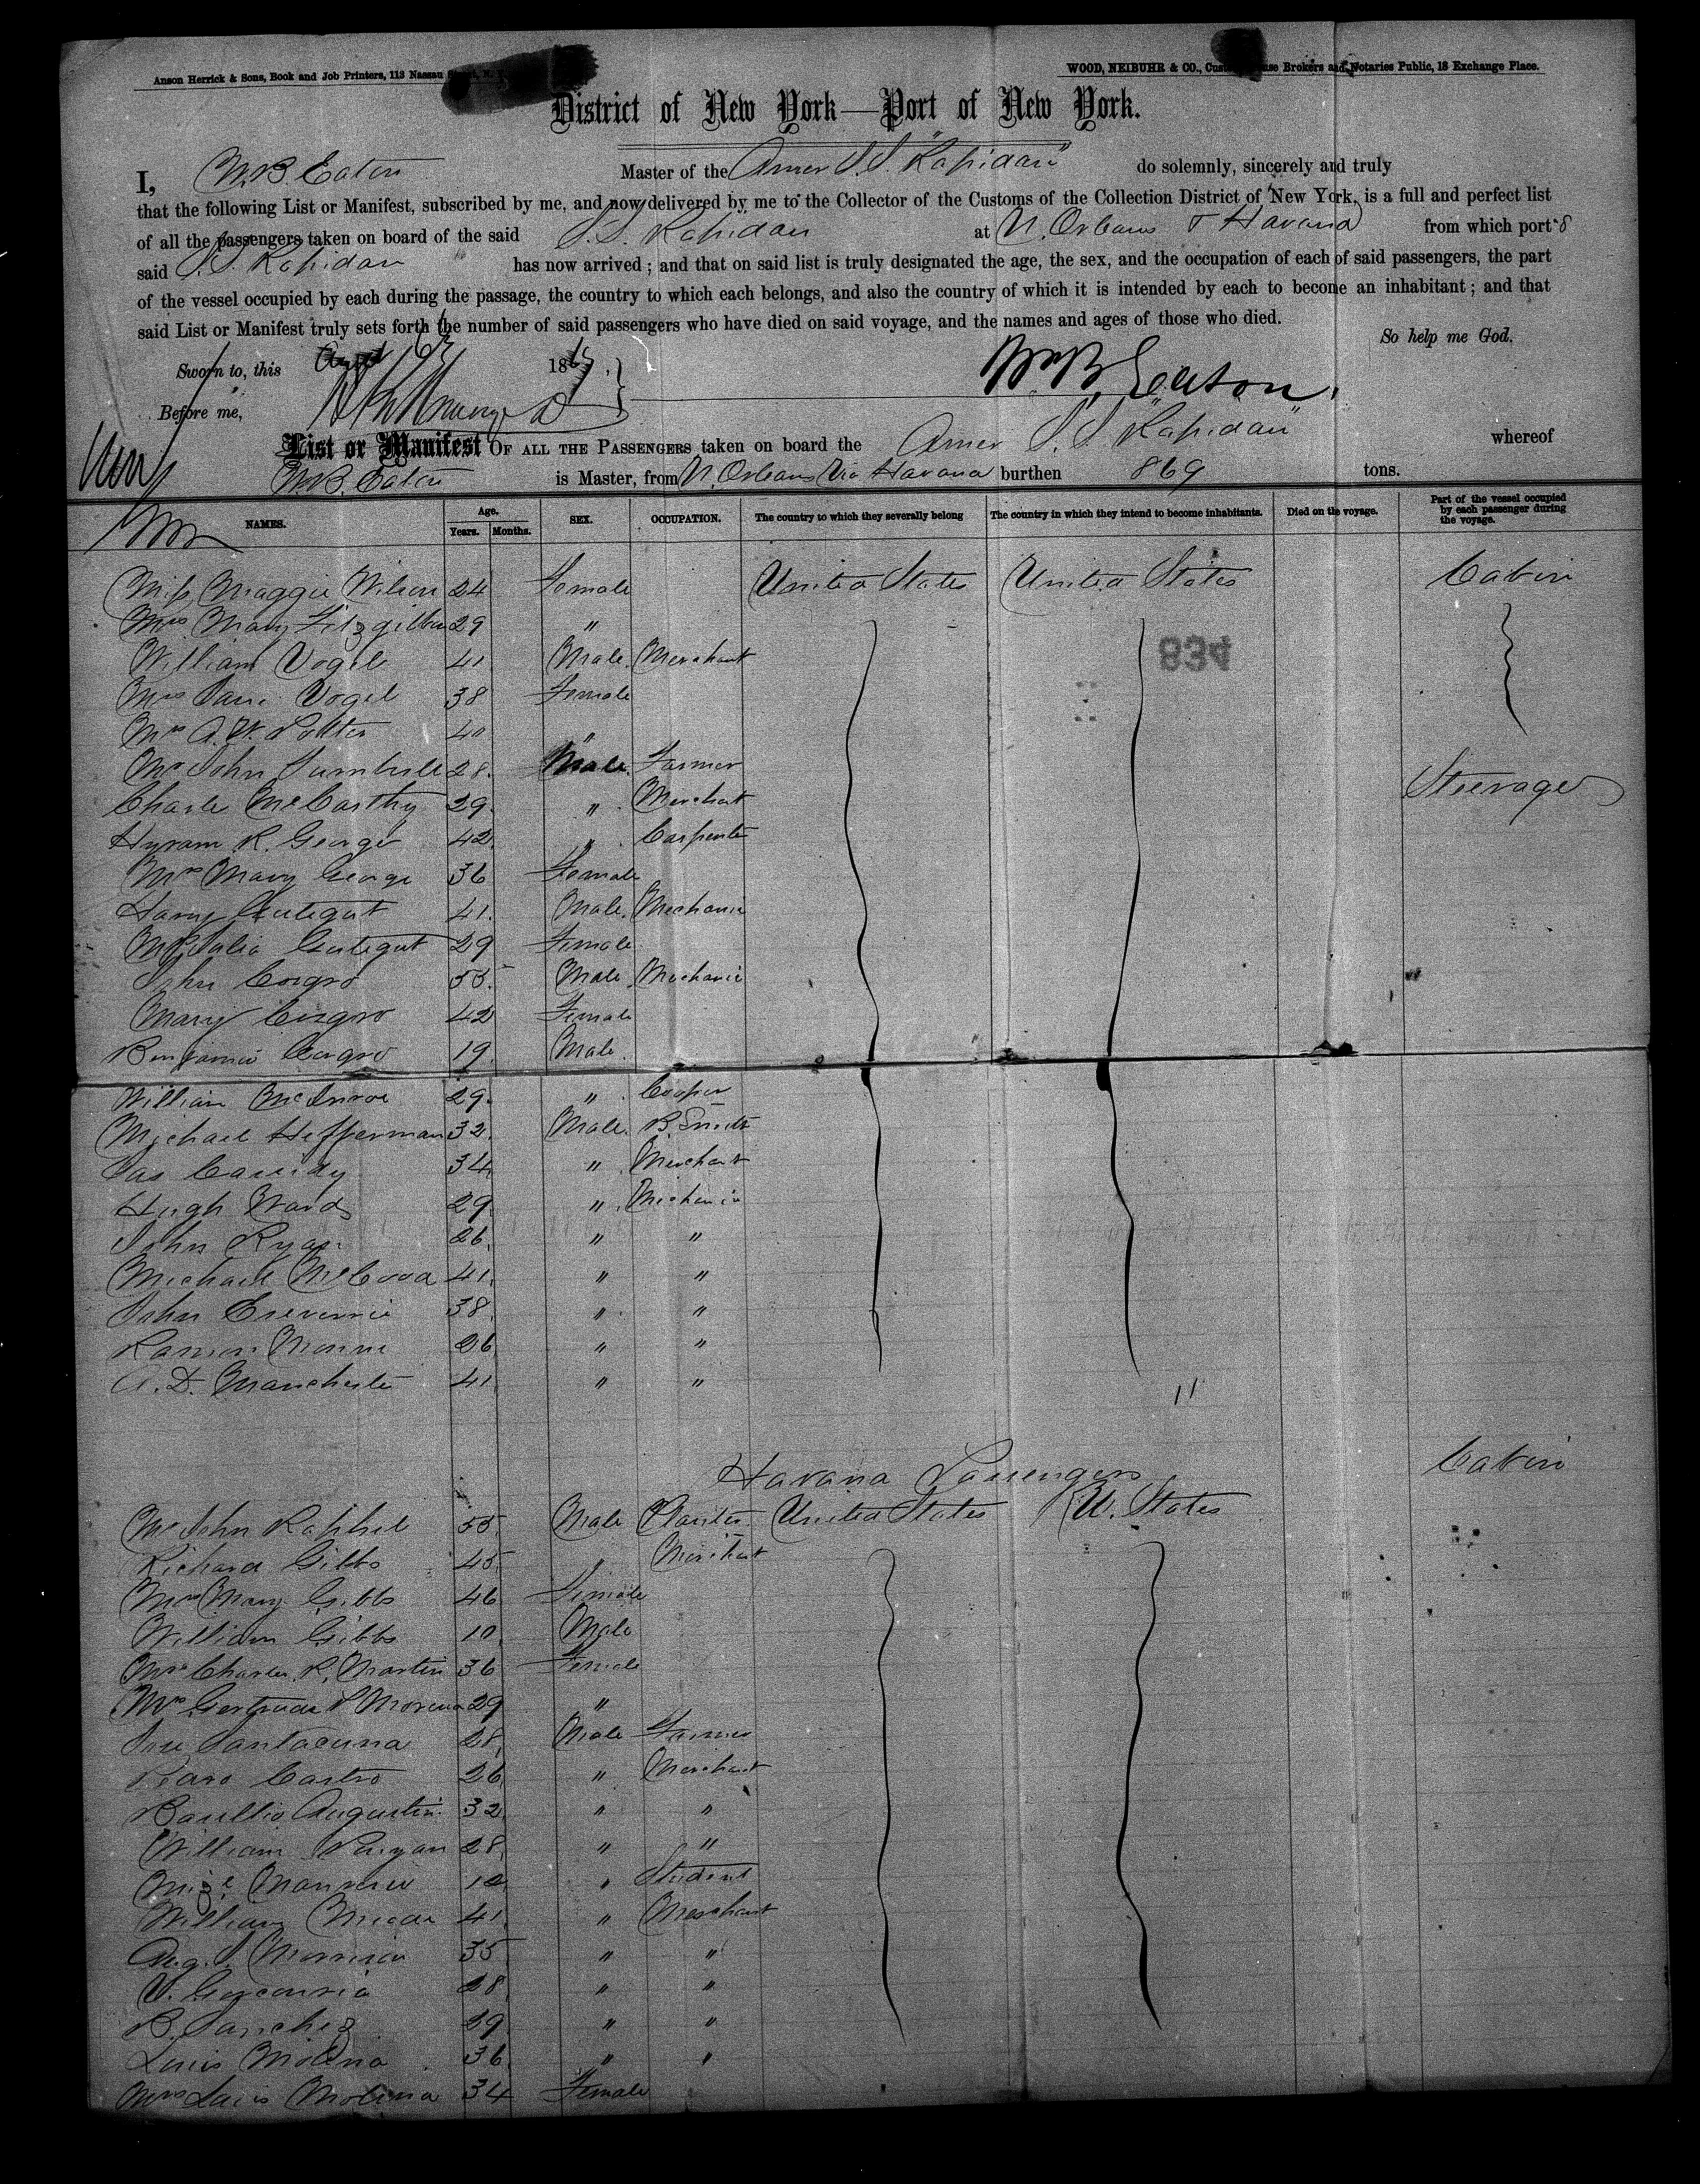 Anson Herrick & Sons, Book and Job Printers, 113 Nassau Street, N. Y.
WOOD, NEIBUHR & CO., Custom House Brokers and Notaries Public, 18 Exchange Place.
District of New York—Port of New York.
I, W.B. Eaton Master of the Amer S.S. "Rapidan" do solemnly, sincerely and truly
that the following List or Manifest, subscribed by me, and now delivered by me to the Collector of the Customs of the Collection District of New York, is a full and perfect list
of all the passengers taken on board of the said S.S. Rapidan at N. Orleans & Havana from which port s
said S.S. Rapidan has now arrived; and that on said list is truly designated the age, the sex, and the occupation of each of said passengers, the part
of the vessel occupied by each during the passage, the country to which each belongs, and also the country of which it is intended by each to become an inhabitant; and that
said List or Manifest truly sets forth the number of said passengers who have died on said voyage, and the names and ages of those who died.
So help me God.
Sworn to, this 186
Wm B Eaton
Before me,
List or Manifest OF ALL THE PASSENGERS taken on board the Amer S.S. "Rapidan" whereof
W.B. Eaton is Master, from N. Orleans Via Havana burthen 869 tons.
NAMES. Age. Years. Months. SEX. OCCUPATION. The country to which they severally belong The country in which they intend to become inhabitants. Died on the voyage. Part of the vessel occupied by each passenger during the voyage.
Miss Maggie Wilson 24 Female United States United States Cabin
Mrs Mary Fitzgibbon 29 "
William Vogel 41 Male Merchant
834
Mrs Jane Vogel 38 Female
Mrs A. W. Potter 40 "
Mr John Turnbull 28 Male Farmer
Charle McCarthy 29 " Merchant Steerage
Hyram R. George 42 " Carpenter
Mrs Mary George 36 Female
Harry Gutegut 41 Male Mechanic
Mrs Julia Gutegut 29 Female
John Cosgro 55 Male Mechanic
Mary Cosgro 42 Female
Benjamin Cosgro 19 Male
William 29 " Cooper
Michael Hefferman 32 Male B Smith
Jas Cassidy 34 " Merchant
Hugh Ward 29 " Mechanic
John Ryan 26 " "
Michael McCood 41 " "
John 38 " "
Ramon 26 " "
A. D. Manchester 41 " "
11
Havana Passengers Cabin
Mr John Raphel 55 Male Planter United States U. States
Richard Gibbs 45 " Merchant
Mrs Mary Gibbs 46 Female
William Gibbs 10 Male
Mrs Charles R. Martin 36 Female
Mrs Gertrude Morena 29 "
Jose Santacana 28 Male Farmer
Pedro Castro 26 " Merchant
Basillio Augustin 32 " "
William 28 " "
" Student
William 41 " Merchant
Aug. S. Morrison 35 " "
V. 28 " "
B. Sanchez 39 " "
Louis Molina 36 " "
Mrs Louis Molina 34 Female